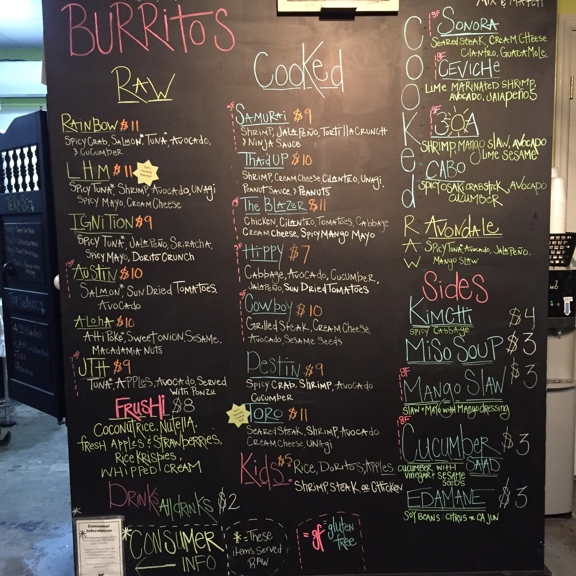 BURRITOS
RAW
RAINBOW $11
SPICY CRAB, SALMON, TUNA, AVOCADO,
& CUCUMBER
LHM $11
SPICY TUNA, SHRIMP, AVOCADO, UNAGI
SPICY MAYO, CREAM CHEESE
IGNITION $9
SPICY TUNA, JALAPEÑO, SRIRACHA,
SPICY MAYO, DORITO CRUNCH
AUSTIN $10
SALMON, SUN DRIED TOMATOES,
AVOCADO
ALOHA $10
AHI POKE, SWEET ONION, SESAME,
MACADAMIA NUTS
JTH $9
TUNA, APPLES, AVOCADO, SERVED
WITH PONZU
FRUSHI $8
COCONUT RICE, NUTELLA,
FRESH APPLES & STRAWBERRIES,
RICE KRISPIES,
WHIPPED CREAM
DRINKS All drinks $2
Consumer
Information
*CONSUMER
INFO
*= These
items served
RAW
= gf = gluten
free
COOKED
SAMURAI $9
SHRIMP, JALAPEÑO, TORTILLA CRUNCH
& NINJA SAUCE
THAI'D UP $10
SHRIMP, CREAM CHEESE, CILANTRO, UNAGI,
PEANUT SAUCE & PEANUTS
THE BLAZER $11
CHICKEN, CILANTRO, TOMATOES, CABBAGE
CREAM CHEESE, SPICY MANGO MAYO
HIPPY $7
CABBAGE, AVOCADO, CUCUMBER,
JALAPEÑO, SUN DRIED TOMATOES
COWBOY $10
GRILLED STEAK, CREAM CHEESE,
AVOCADO, SESAME SEEDS
DESTIN $9
SPICY CRAB, SHRIMP, AVOCADO
CUCUMBER
TORO $11
SEARED STEAK, SHRIMP, AVOCADO
CREAM CHEESE, UNAGI
KIDS RICE, DORITOS, APPLES
SHRIMP, STEAK OR CHICKEN
MIX & MATCH
COOKED
SONORA
SEARED STEAK, CREAM CHEESE
CILANTRO, GUACAMOLE
CEVICHE
LIME MARINATED SHRIMP,
AVOCADO, JALAPEÑOS
30A
SHRIMP, MANGO SLAW, AVOCADO
LIME SESAME
CABO
CRABSTICK, AVOCADO
CUCUMBER
RAW
AVONDALE
SPICY TUNA, AVOCADO, JALAPEÑO,
MANGO SLAW
SIDES
KIMCHI $4
SPICY CABBAGE
MISO SOUP $3
MANGO SLAW $3
SLAW + MAYO WITH MANGO DRESSING
CUCUMBER SALAD $3
CUCUMBER WITH
VINEGAR & SESAME
SEEDS
EDAMAME $3
SOY BEANS: CITRUS OR CAJUN